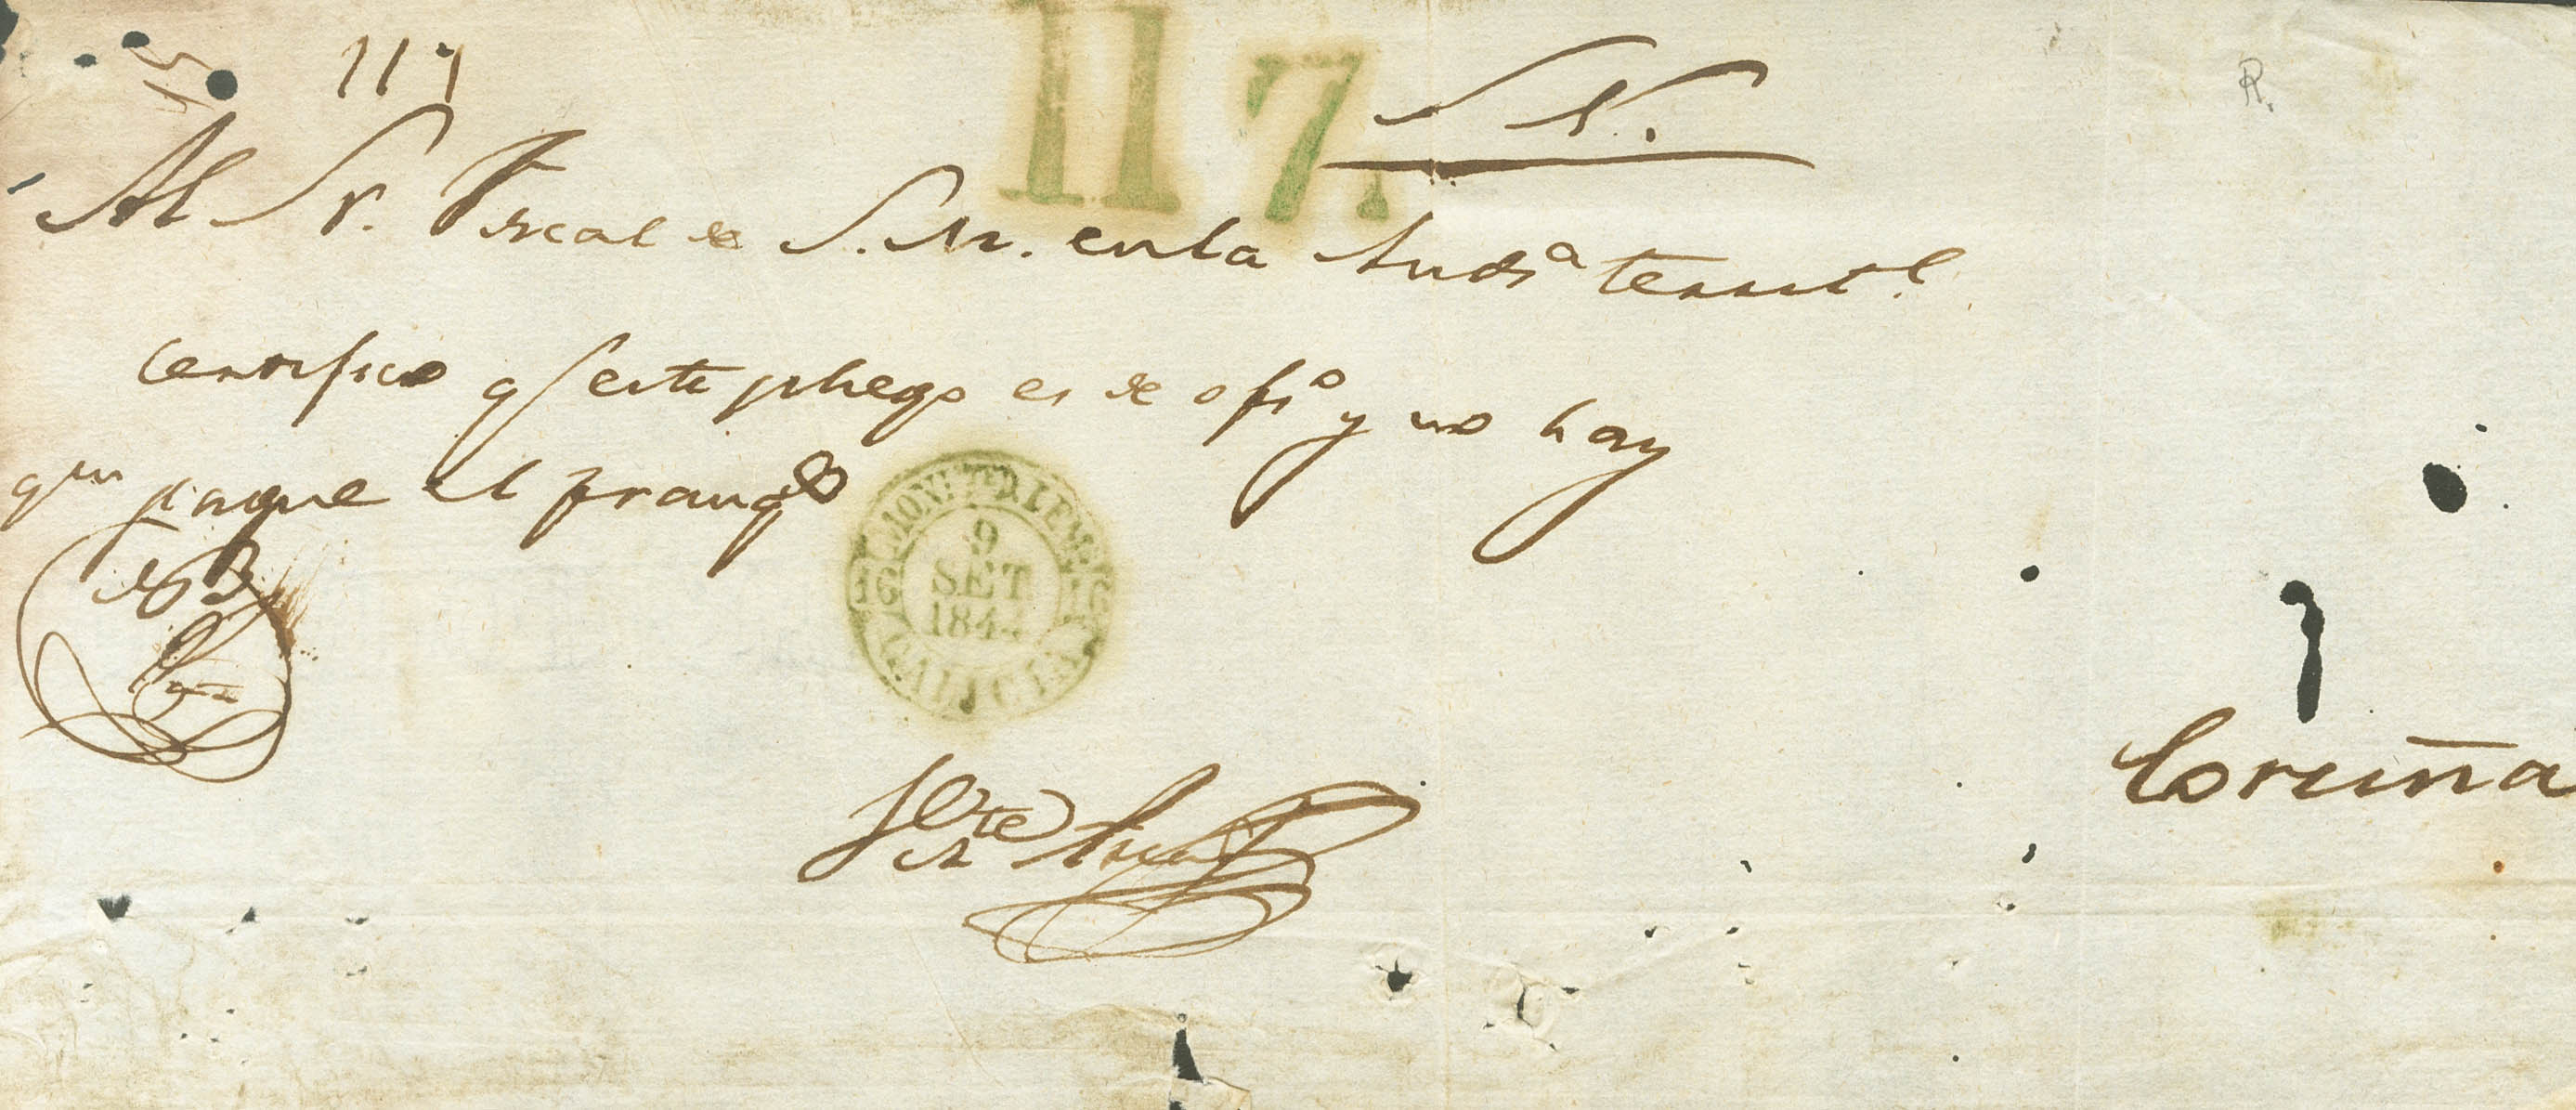 117
117.
S. N.
Al Sr. Fiscal de S. M. en la Auda territl.
Certifico q este pliego es de ofio y no hay
qn pague el franqo
MONF.TE D LEMUS
16 9 16
SET
184
GALICIA
Coruña
R.